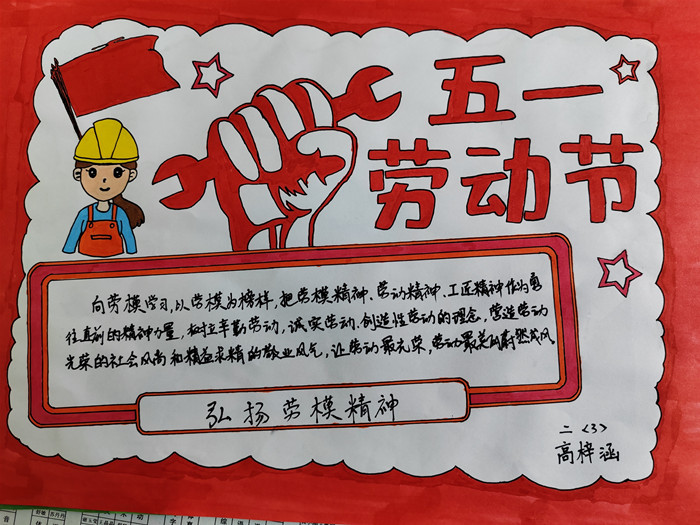 五一
劳动节
向劳模学习,以劳模为榜样,把劳模精神、劳动精神、工匠精神作为勇
往直前的精神力量,树立辛勤劳动,诚实劳动、创造性劳动的理念,营造劳动
光荣的社会风尚和精益求精的敬业风气,让劳动最光荣,劳动最美的蔚然成风
弘扬劳模精神
二<3>
高梓涵